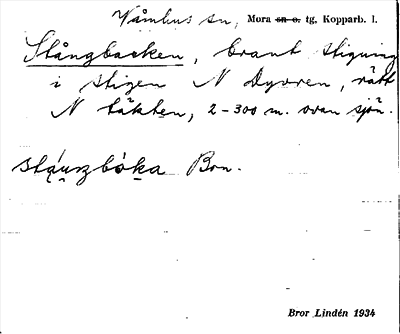 Våmhus sn, Mora sn o. tg, Kopparb. l.
Stångbacken, brant stigning
i stigen N Dyvren, rätt
N täkten, 2-300 m. ovan sjön.
Bon.
Bror Lindén 1934